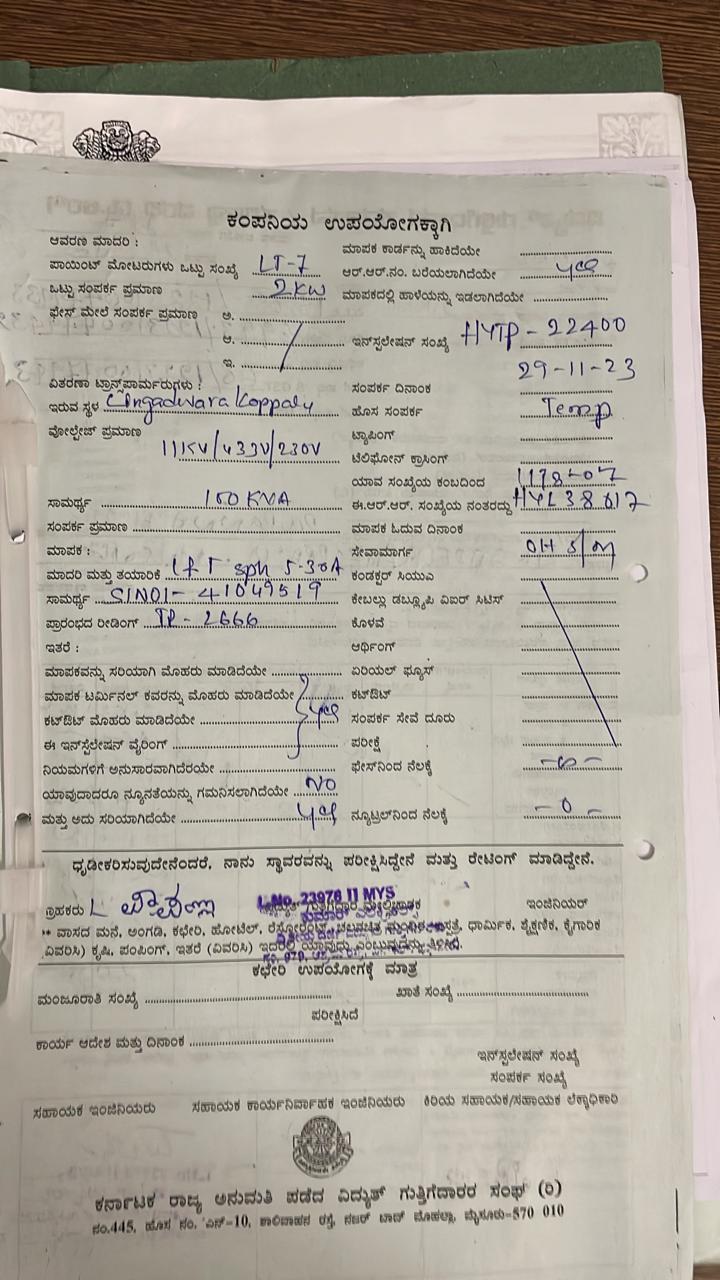 ಕಂಪನಿಯ ಉಪಯೋಗಕ್ಕಾಗಿ
ಆವರಣ ಮಾದರಿ :
ಪಾಯಿಂಟ್ ಮೋಟರುಗಳು ಒಟ್ಟು ಸಂಖ್ಯೆ LT-7
ಒಟ್ಟು ಸಂಪರ್ಕ ಪ್ರಮಾಣ 2KW
ಫೇಸ್ ಮೇಲೆ ಸಂಪರ್ಕ ಪ್ರಮಾಣ ಅ.
ಆ.
ಇ.
ವಿತರಣಾ ಟ್ರಾನ್ಸ್‌ಫಾರ್ಮರುಗಳು :
ಇರುವ ಸ್ಥಳ Lingadevara Koppalu
ವೋಲ್ಟೇಜ್ ಪ್ರಮಾಣ
11KV/433V/230V
ಸಾಮರ್ಥ್ಯ 100 KVA
ಸಂಪರ್ಕ ಪ್ರಮಾಣ
ಮಾಪಕ :
ಮಾದರಿ ಮತ್ತು ತಯಾರಿಕೆ L&T sph 5-30A
ಸಾಮರ್ಥ್ಯ SLNO1- 41049519
ಪ್ರಾರಂಭದ ರೀಡಿಂಗ್ TP-2666
ಇತರೆ :
ಮಾಪಕವನ್ನು ಸರಿಯಾಗಿ ಮೊಹರು ಮಾಡಿದೆಯೇ
ಮಾಪಕ ಟರ್ಮಿನಲ್ ಕವರನ್ನು ಮೊಹರು ಮಾಡಿದೆಯೇ
ಕಟ್‌ಔಟ್ ಮೊಹರು ಮಾಡಿದೆಯೇ yes
ಈ ಇನ್‌ಸ್ಟಲೇಷನ್ ವೈರಿಂಗ್
ನಿಯಮಗಳಿಗೆ ಅನುಸಾರವಾಗಿದೆರಯೇ
ಯಾವುದಾದರೂ ನ್ಯೂನತೆಯನ್ನು ಗಮನಿಸಲಾಗಿದೆಯೇ NO
ಮತ್ತು ಅದು ಸರಿಯಾಗಿದೆಯೇ yes
ಮಾಪಕ ಕಾರ್ಡನ್ನು ಹಾಕಿದೆಯೇ
ಆರ್.ಆರ್.ನಂ. ಬರೆಯಲಾಗಿದೆಯೇ yes
ಮಾಪಕದಲ್ಲಿ ಹಾಳೆಯನ್ನು ಇಡಲಾಗಿದೆಯೇ
ಇನ್‌ಸ್ಟಲೇಷನ್ ಸಂಖ್ಯೆ HYTP-22400
29-11-23
ಸಂಪರ್ಕ ದಿನಾಂಕ
ಹೊಸ ಸಂಪರ್ಕ Temp
ಟ್ಯಾಪಿಂಗ್
ಟೆಲಿಫೋನ್ ಕ್ರಾಸಿಂಗ್
ಯಾವ ಸಂಖ್ಯೆಯ ಕಂಬದಿಂದ
ಈ.ಆರ್.ಆರ್. ಸಂಖ್ಯೆಯ ನಂತರದ್ದು HYL38617
ಮಾಪಕ ಓದುವ ದಿನಾಂಕ
ಸೇವಾಮಾರ್ಗ OH S/M
ಕಂಡಕ್ಟರ್ ಸಿಯುಎ
ಕೇಬಲ್ಲು ಡಬ್ಲ್ಯೂಪಿ ವಿಐರ್ ಸಿಟಿಸ್
ಕೊಳವೆ
ಆರ್ಥಿಂಗ್
ಏರಿಯಲ್ ಫ್ಯೂಸ್
ಕಟ್‌ಔಟ್
ಸಂಪರ್ಕ ಸೇವೆ ದೂರು
ಪರೀಕ್ಷೆ
ಫೇಸ್‌ನಿಂದ ನೆಲಕ್ಕೆ -∞-
ನ್ಯೂಟ್ರಲ್‌ನಿಂದ ನೆಲಕ್ಕೆ -0-
ಧೃಡೀಕರಿಸುವುದೇನೆಂದರೆ, ನಾನು ಸ್ಥಾವರವನ್ನು ಪರೀಕ್ಷಿಸಿದ್ದೇನೆ ಮತ್ತು ರೇಟಿಂಗ್ ಮಾಡಿದ್ದೇನೆ.
L.No. 23978 II MYS
ಗ್ರಾಹಕರು ಇಂಜಿನಿಯರ್
** ವಾಸದ ಮನೆ, ಅಂಗಡಿ, ಕಛೇರಿ, ಹೋಟೆಲ್, ರೆಸ್ಟೋರೆಂಟ್, ಚಲನಚಿತ್ರ ಮಂದಿರ, ಆಸ್ಪತ್ರೆ, ಧಾರ್ಮಿಕ, ಶೈಕ್ಷಣಿಕ, ಕೈಗಾರಿಕ
ವಿವರಿಸಿ) ಕೃಷಿ, ಪಂಪಿಂಗ್, ಇತರೆ (ವಿವರಿಸಿ) ಇದರಲ್ಲಿ ಯಾವುದು ಎಂಬುವುದನ್ನು ತಿಳಿಸಿದೆ.
ಕಛೇರಿ ಉಪಯೋಗಕ್ಕೆ ಮಾತ್ರ
ಮಂಜೂರಾತಿ ಸಂಖ್ಯೆ ಖಾತೆ ಸಂಖ್ಯೆ
ಪರೀಕ್ಷಿಸಿದೆ
ಕಾರ್ಯ ಆದೇಶ ಮತ್ತು ದಿನಾಂಕ
ಇನ್‌ಸ್ಟಲೇಷನ್ ಸಂಖ್ಯೆ
ಸಂಪರ್ಕ ಸಂಖ್ಯೆ
ಸಹಾಯಕ ಇಂಜಿನಿಯರು ಸಹಾಯಕ ಕಾರ್ಯನಿರ್ವಾಹಕ ಇಂಜಿನಿಯರು ಕಿರಿಯ ಸಹಾಯಕ/ಸಹಾಯಕ ಲೆಕ್ಕಾಧಿಕಾರಿ
ಕರ್ನಾಟಕ ರಾಜ್ಯ ಅನುಮತಿ ಪಡೆದ ವಿದ್ಯುತ್ ಗುತ್ತಿಗೆದಾರರ ಸಂಘ (ರಿ)
ನಂ.445, ಹೊಸ ನಂ. ಎನ್-10, ಶಾಲಿವಾಹನ ರಸ್ತೆ, ನಜರ್ ಬಾದ್ ಮೊಹಲ್ಲಾ, ಮೈಸೂರು-570 010